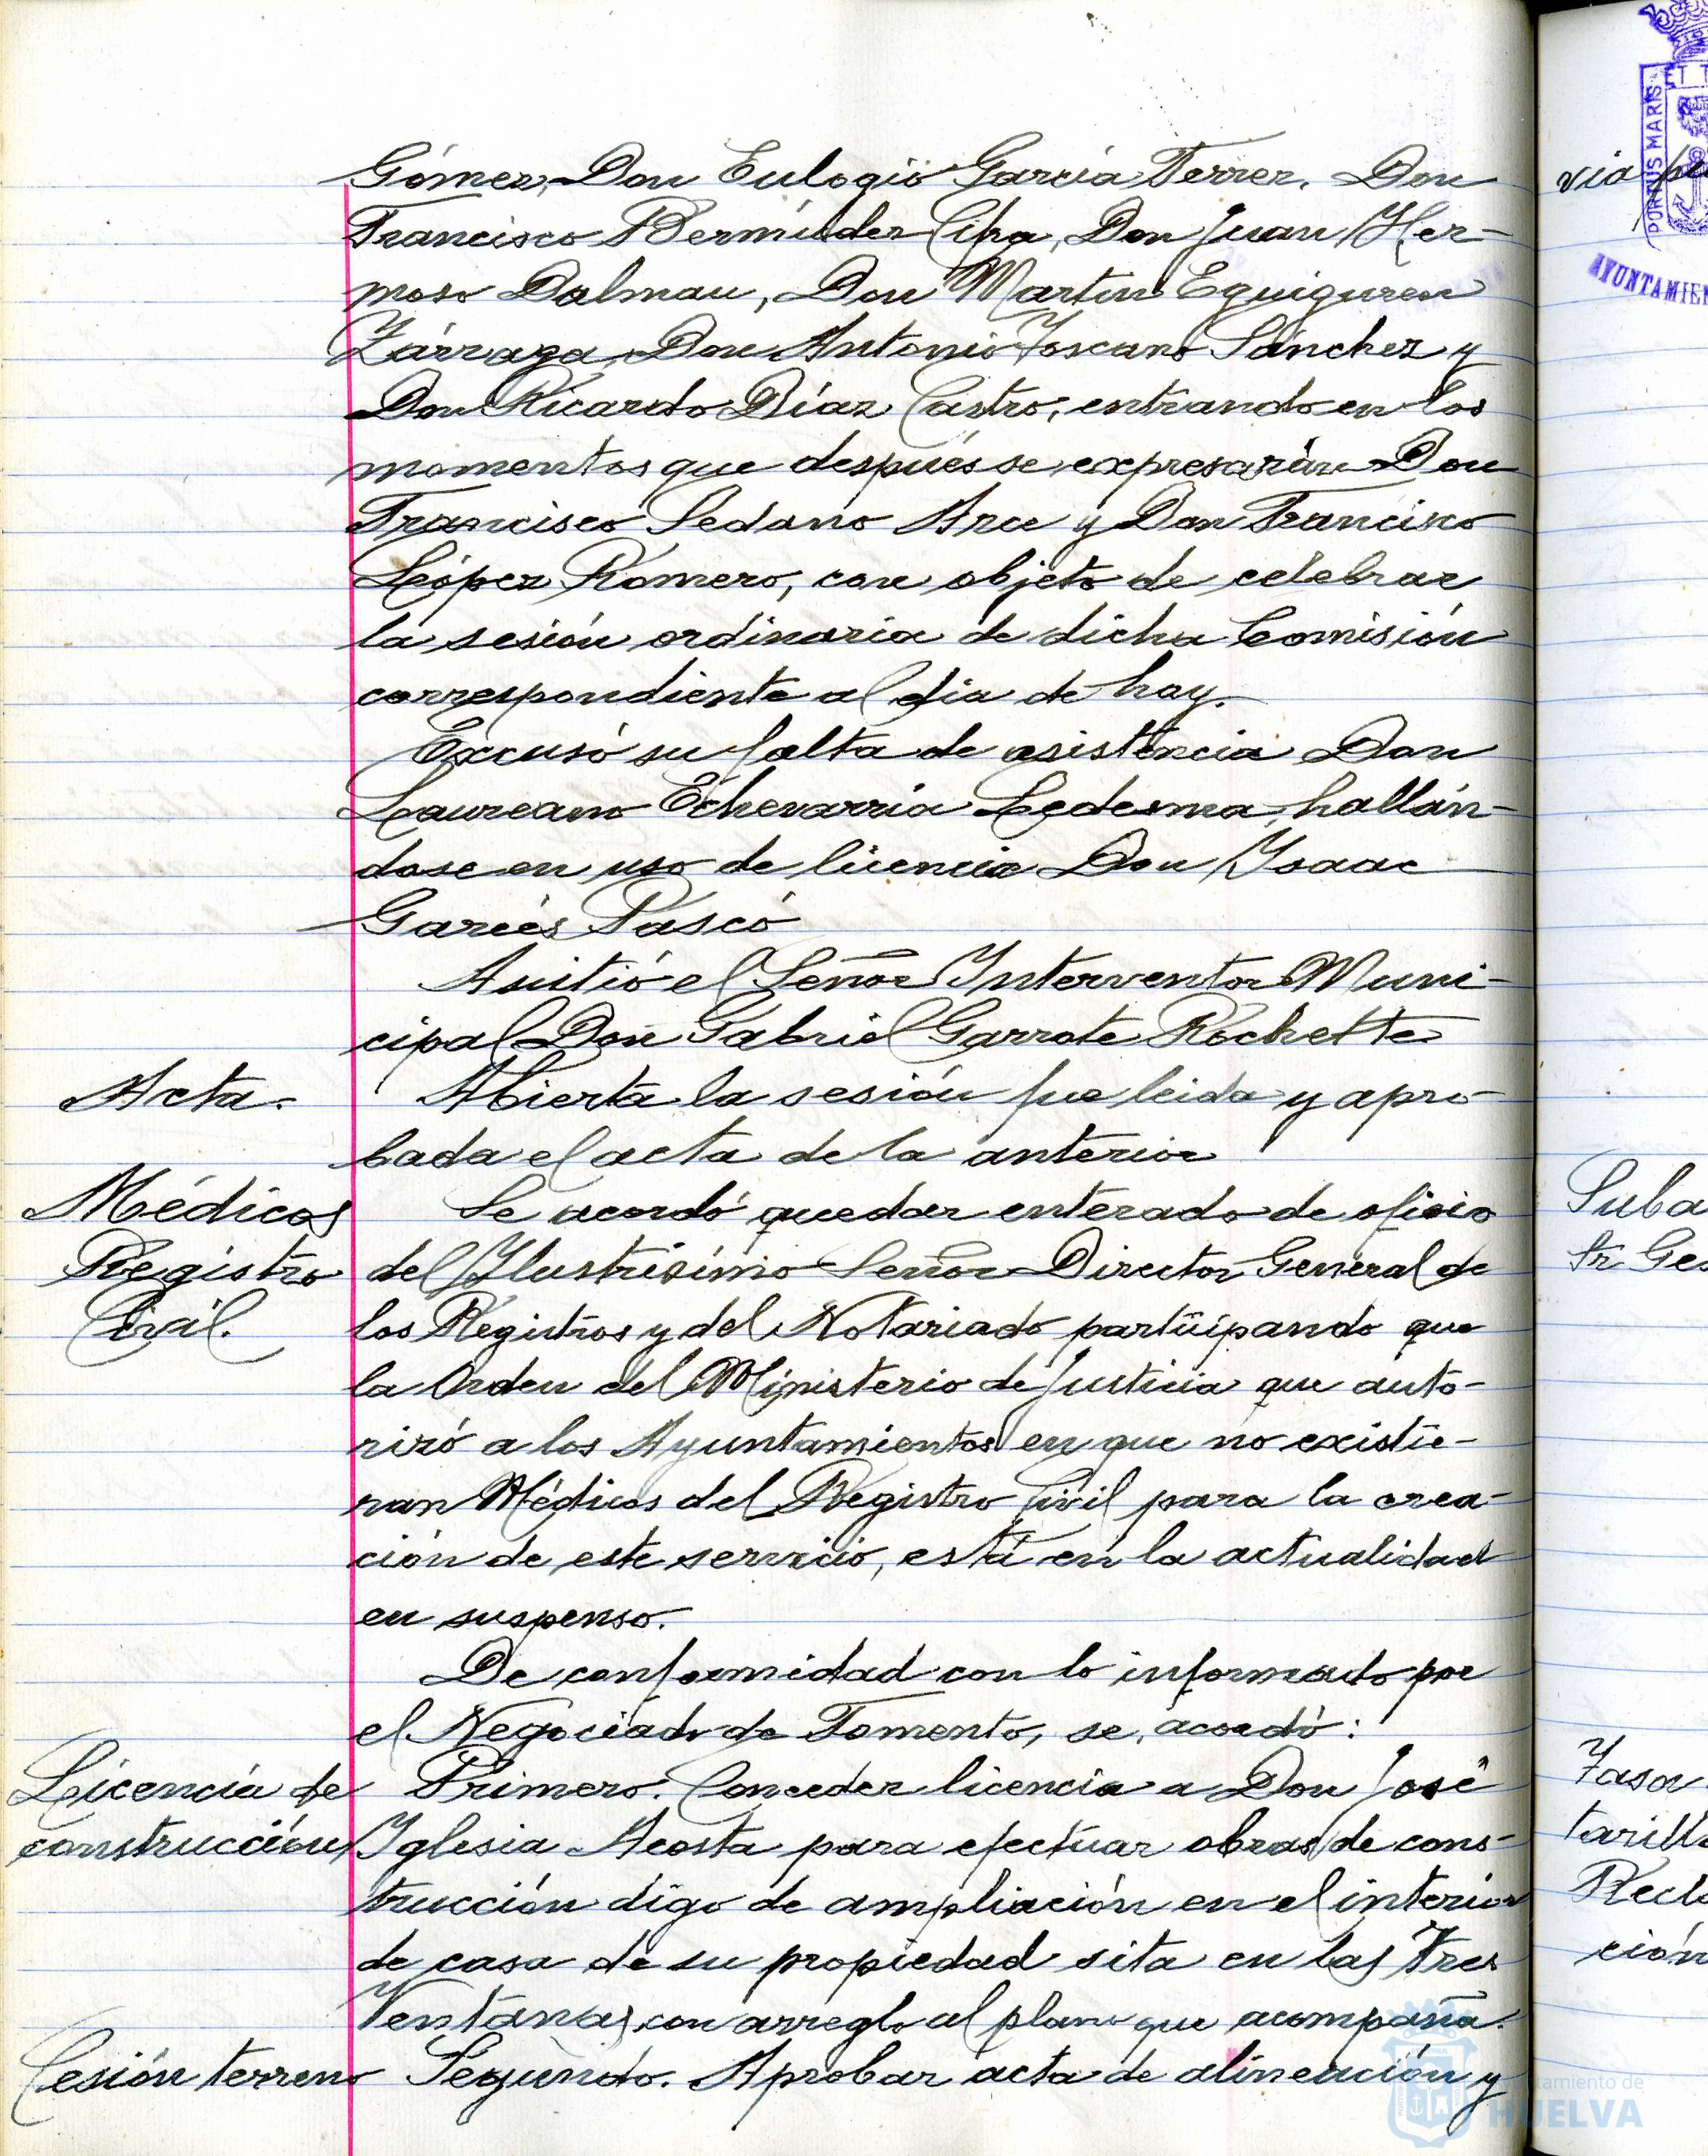 Gómez, Don Eulogio García Ferrer. Don
Francisco Bermúdez Cifra, Don Juan Her-
moso Dalmau, Don Martin Eguiguren
Zárraga, Don Antonio Toscano Sánchez y
Don Ricardo Díaz Castro, entrando en los
momentos que después se expresarán Don
Francisco Sedano Arce y Don Francisco
López Romero, con objeto de celebrar
la sesión ordinaria de dicha Comisión
correspondiente al dia de hoy.
Excusó su falta de asistencia Don
Laureano Echevarria Ledesma, hallán-
dose en uso de licencia Don Ysaac
Garcés Pascó
Asitió el Señor Ynterventor Muni-
cipal Don Gabriel Garrote Rochette
Acta. Abierta la sesión fue leida y apro-
bada el acta de la anterior
Médicos Se acordó quedar enterado de oficio
Registro del Ylustrísimo Señor Director General de
Civil. los Registros y del Notariado participando que
la Orden del Ministerio de Justicia que auto-
rizó a los Ayuntamientos en que no existie-
ran Médicos del Registro Civil para la crea-
ción de este servicio, está en la actualidad
en suspenso.
De conformidad con lo informado por
el Negociado de Fomento, se acordó:
Licencia de Primero. Conceder licencia a Don José
construcción Yglesia Acosta para efectuar obras de cons-
trucción digo de ampliación en el interior
de casa de su propiedad sita en las Tres
Ventanas, con arreglo al plano que acompaña.
Cesión terreno Segundo. Aprobar acta de alineación y
PORTUS MARIS ET T
AYUNTAMIEN
via pu
Suba
Sr Ges
Tasa
tarill
Recla
ción
Ayuntamiento de
HUELVA